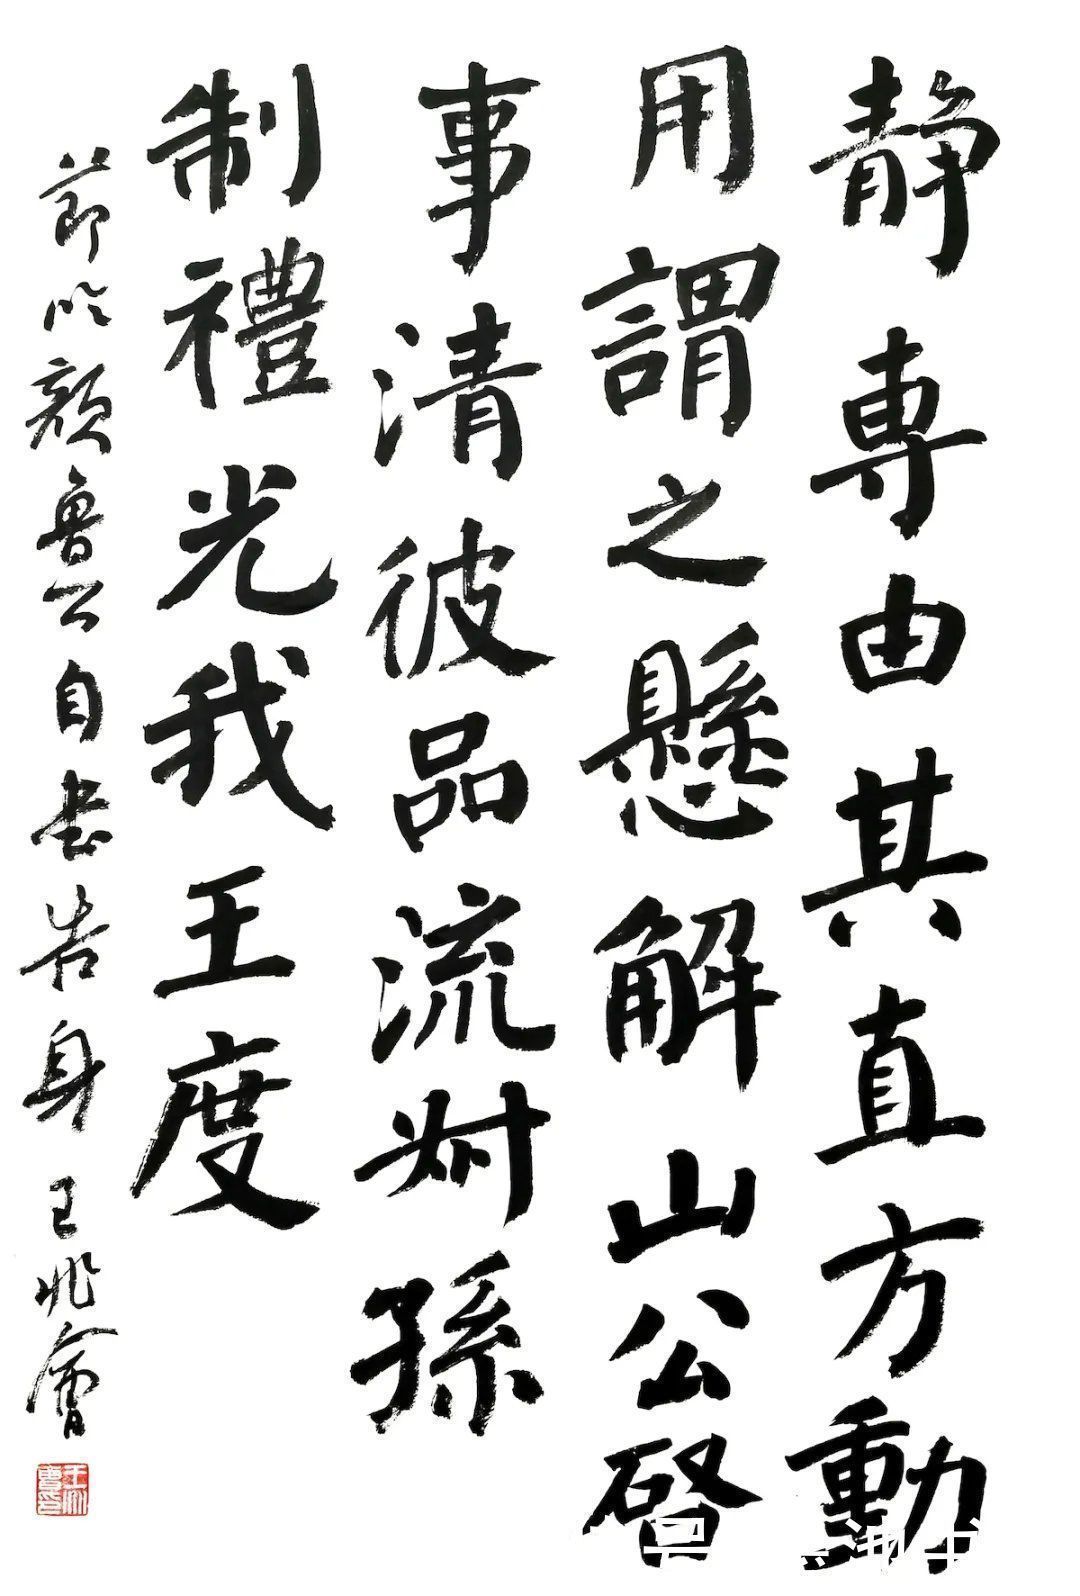 静専由其直方動
用謂之懸解山公啓
事清彼品流叔孫
制禮光我王度
莭临顔魯公自書告身 王兆會